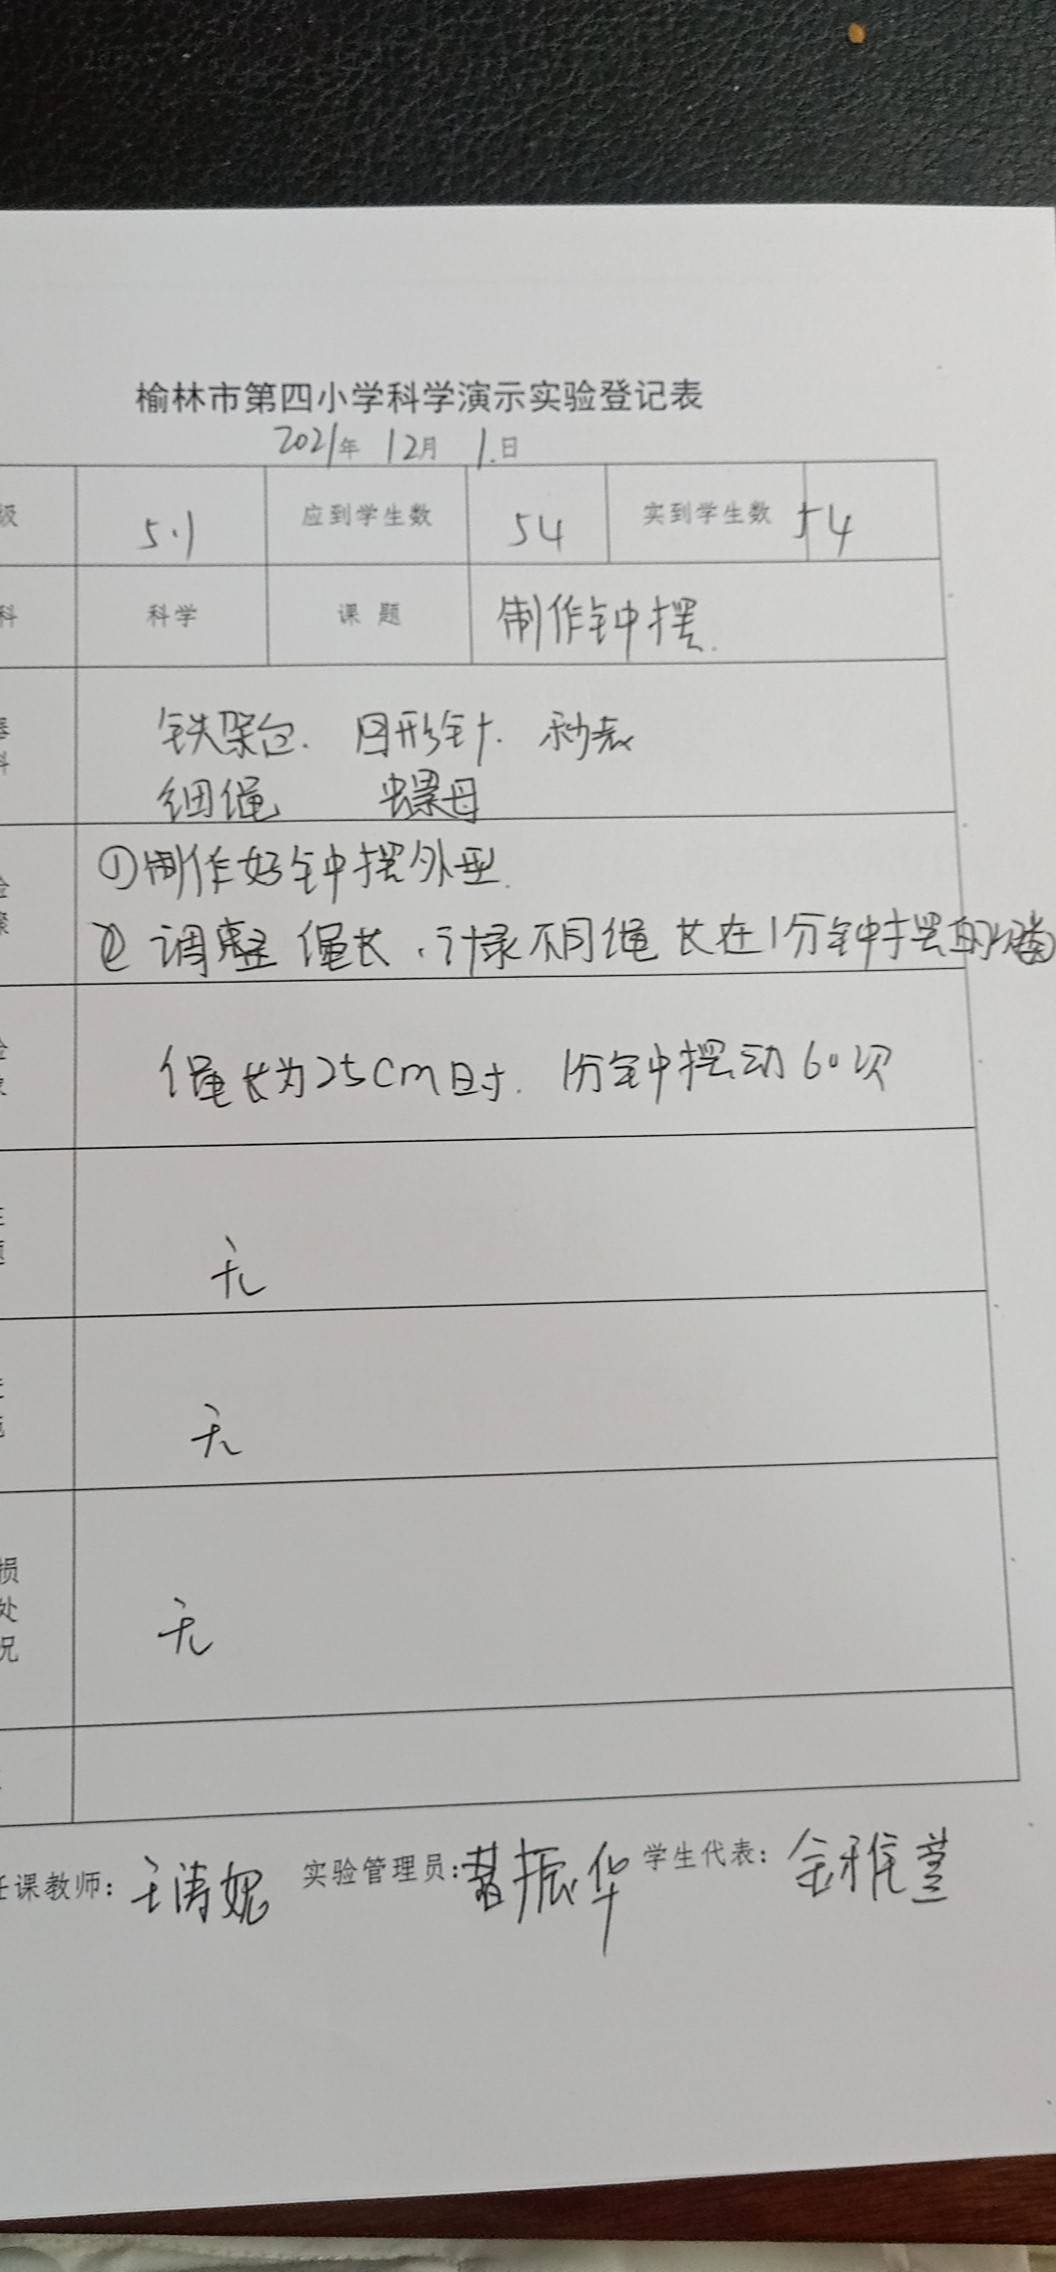 榆林市第四小学科学演示实验登记表
2021年 12月 1.日
级 5.1 应到学生数 54 实到学生数 54
科 科学 课题 制作钟摆.
铁架台. 回形针. 秒表
细绳 螺母
①制作好钟摆外型.
② 调整绳长,计录不同绳长在1分钟摆的
绳长为25cm时. 1分钟摆动60次
无
无
损
处 无
况
任课教师: 实验管理员: 振华 学生代表: 金雅萱